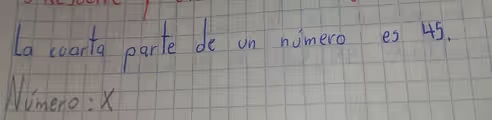 La cuarta parte de un número es 45.
Número: X